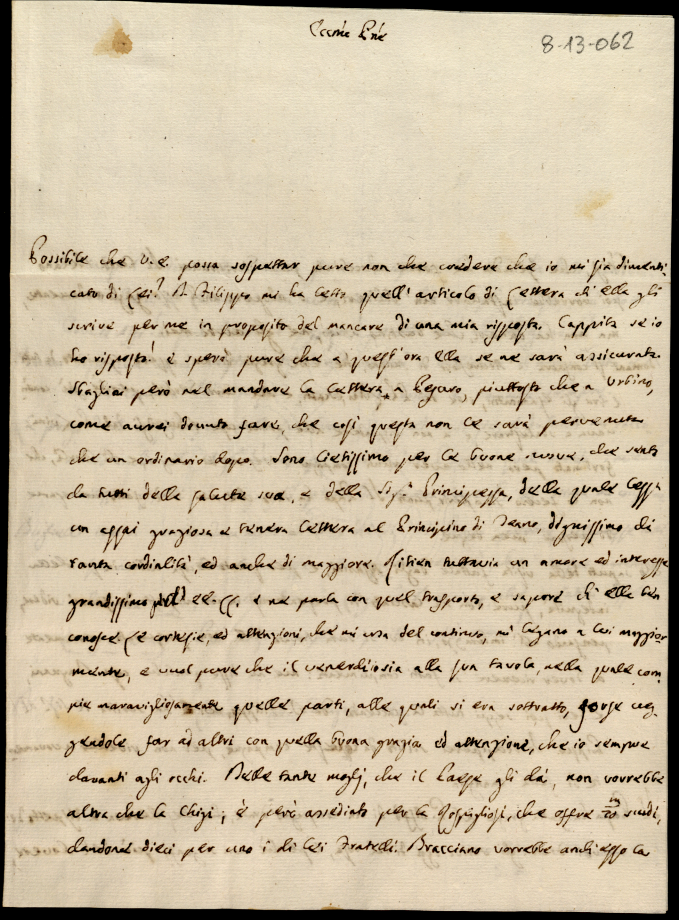 8-13-062
Possibile che V.E. possa sospettar pure non che credere che io mi sia dimenti
cato di Lei? D. Filippo mi ha letto quell'articolo di Lettera ch'ella gli
scrive per me in proposito del mancare di una mia risposta. Cappita se io
ho risposto! e spero pure che a quest'ora ella se ne sarà assicurata.
Sbagliai però nel mandare la Lettera a Pesaro, piuttosto che a Urbino,
come avrei dovuto fare, che così questa non le sarà pervenuta
che un ordinario dopo. Sono lietissimo per le buone nuove, che sento
da tutti della salute sua, e della Sig.ª Principessa, della quale lessi
un assai graziosa e tenera Lettera al Principino di Teano, dignissimo di
tanta cordialità, ed anche di maggiore. Ritien tuttavia un amore ed interesse
grandissimo e ne parla con quel trasporto, e sapore ch'ella ben
conosce. Le cortesie, ed attenzioni, che mi usa del continuo, mi legano a lui maggior
mente, e vuol pure che il venerdì sia alla sua tavola, nella quale com
pie maravigliosamente quelle parti, alle quali si era sottratto, forse veg
gendole far ad altri con quella buona grazia ed attenzione, che io sempre
davanti agli occhi. Delle tante mogli, che il Paese gli dà, non vorrebbe
altra che la Chigi; è però assediato per la Rospigliosi, che offre scudi,
dandone dieci per uno i di Lei Fratelli. Bracciano vorrebbe anch'esso la